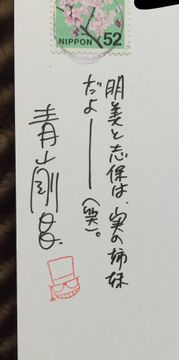 NIPPON 52
明美と志保は、実の姉妹
だよ——(笑)。
青山剛昌